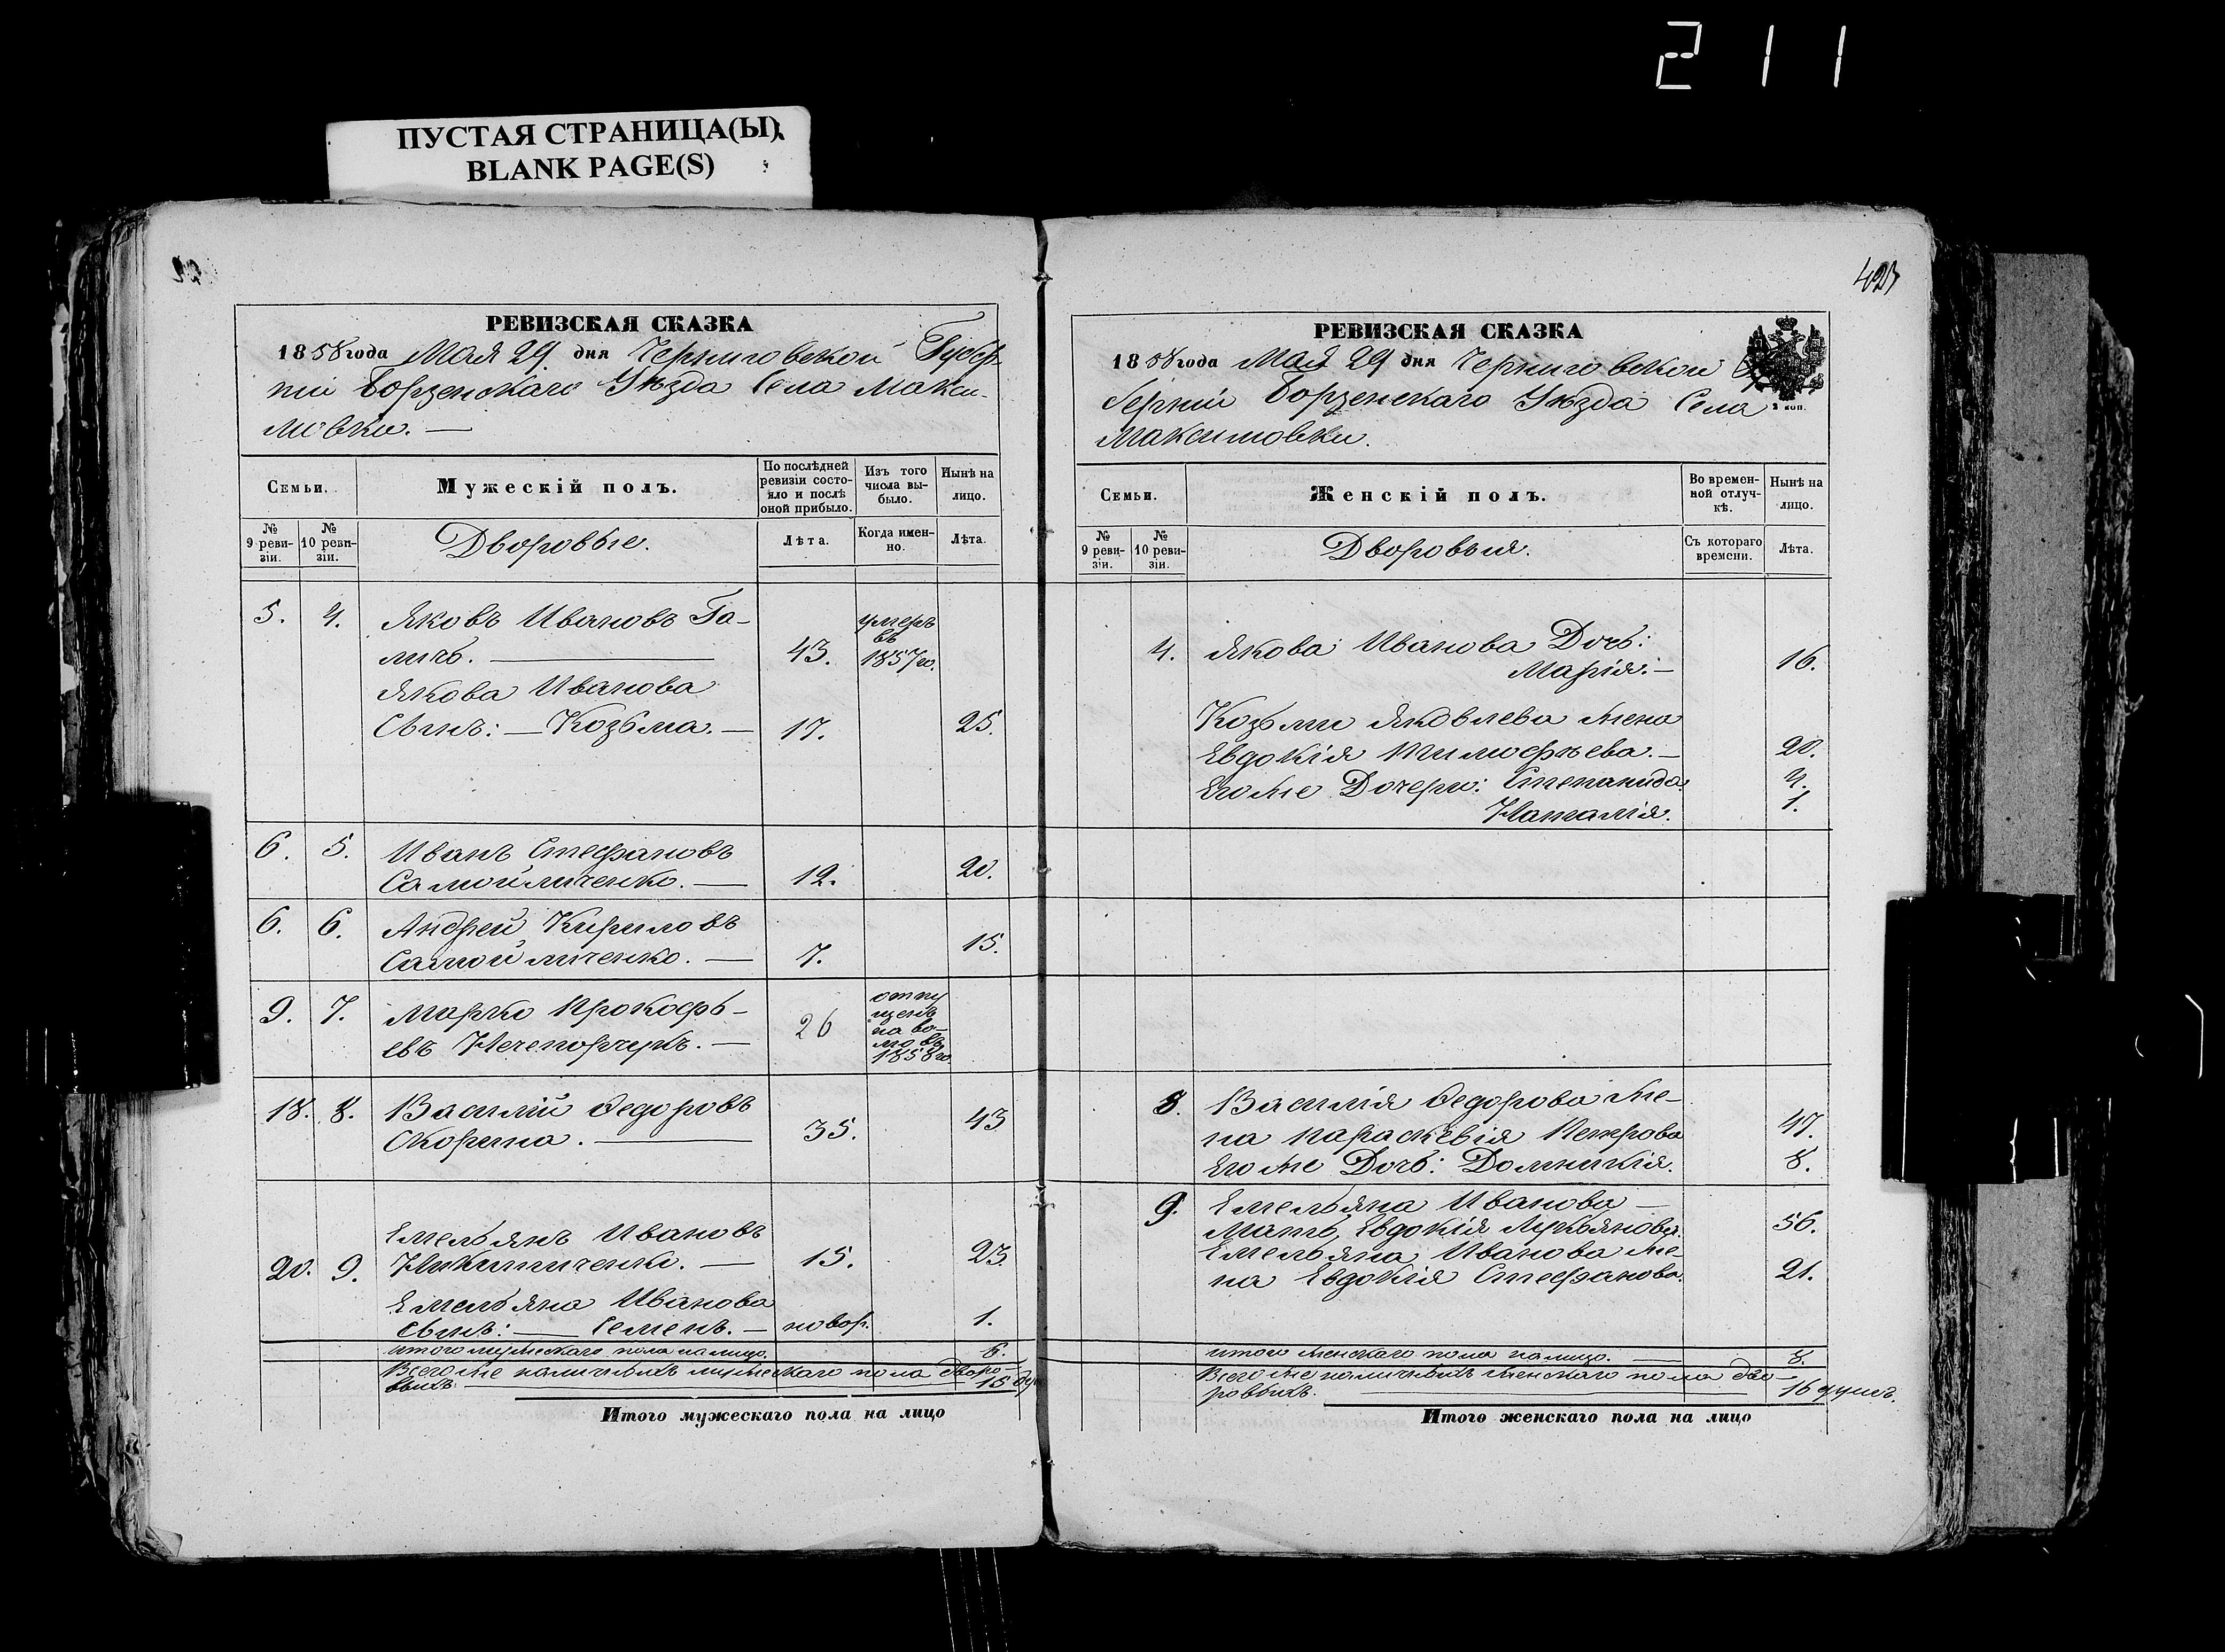 211
ПУСТАЯ СТРАНИЦА(Ы)
BLANK PAGE(S)
РЕВИЗСКАЯ СКАЗКА
1858 года Мая 29 дня Черниговской Губер-
ніи Борзенскаго Уѣзда Села Макси-
мовки. —
Семьи.
Мужескій полъ.
По послѣдней ревизіи состо-
яло и послѣ оной прибыло.
Изъ того числа вы-
было.
Нынѣ на лицо.
№ 9 реви-
зіи.
№ 10 реви-
зіи.
Дворовые.
Лѣта.
Когда имен-
но.
Лѣта.
5. 4. Яковъ Ивановъ Га-
личъ. — 43. умеръ въ 1857го.
Якова Иванова
Сынъ: — Козьма. — 17. 25.
6. 5. Иванъ Стефановъ
Самойличенко. — 12. 20.
6. 6. Андрей Кириловъ
Самойличенко. — 7. 15.
9. 7. Марко Прокофь-
евъ Нечепорчукъ. — 26 отпу
щенъ
на во-
лю въ
1858го
18. 8. Василій Федоровъ
Скорина. — 35. 43
Емельянъ Ивановъ
20. 9. Никитиченко. — 15. 23.
Емельяна Иванова
Сынъ: — Семенъ. — новор. 1.
Итого мужескаго пола на лицо. 6.
Всего же наличныхъ мужескаго пола дворо-
выхъ. — 15
Итого мужескаго пола на лицо
РЕВИЗСКАЯ СКАЗКА
1858 года Мая 29 дня Черниговской
берніи Борзенскаго Уѣзда Села
Максимовки.
Семьи.
Женскій полъ.
Во времен-
ной отлуч-
кѣ.
Нынѣ на лицо.
№ 9 реви-
зіи.
№ 10 реви-
зіи.
Дворовыя.
Съ котораго времени.
Лѣта.
4. Якова Иванова Дочь:
Марія. — 16.
Козьми Яковлева жена
Евдокія Тимофѣева. — 20.
Его же Дочери: Степанида 4.
Наталія. 1.
8. Василія Федорова же-
на Параскевія Петрова 47.
Его же Дочь: Домникія. 8.
9. Емельяна Иванова —
Мать, Евдокія Лукьянова. 56.
Емельяна Иванова же-
на Евдокія Стефанова. 21.
Итого женскаго пола на лицо. — 8.
Всего же наличныхъ женскаго пола дво-
ровыхъ. — 16 душъ.
Итого женскаго пола на лицо